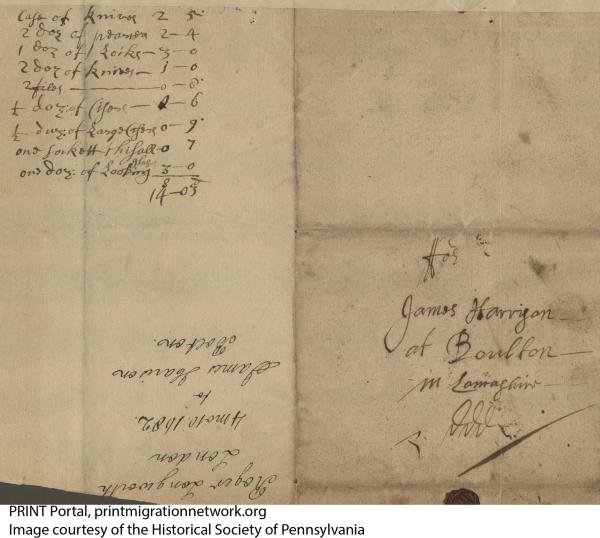 Case of knives 2 5
2 doz of 2 - 4
1 doz of Locks - 3 - 0
2 doz of knives - 1 - 0
2 files - 0 - 8
½ doz: of Cisers - 6
½ doz: of Large Cisers 0 - 9
one sockett Chisall - 0 7
one doz: of Looking Glas 3 - 0
14 - 03
ffor
James Harrison
at Boulton
in Lancashire
ddd
Roger Longworth
London
4 mo 10. 1682.
to
James Harison
Bolton.
PRINT Portal, printmigrationnetwork.org
Image courtesy of the Historical Society of Pennsylvania